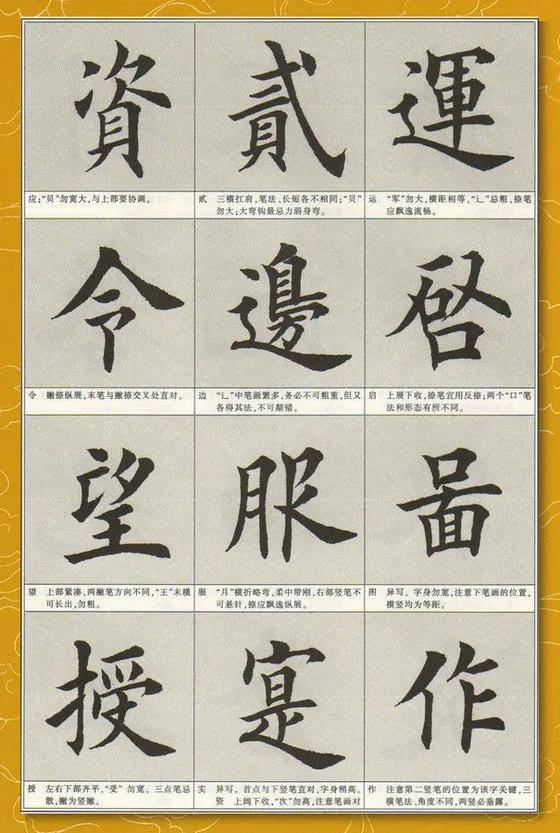 運
运 “军”勿大,横距相等,“辶”忌粗,捺笔
应飘逸流畅。
啓
启 上展下收,捺笔宜用反捺;两个“口”笔
法和形态有所不同。
啚
图 异写。字身勿宽,注意下笔画的位置,
横竖均为等距。
作
作 注意第二竖笔的位置为该字关键,三
横笔法、角度不同,两竖必垂露。
貳
贰 三横扛肩,笔法、长短各不相同;“贝”
勿大;大弯钩最忌力弱身弯。
邊
边 “辶”中笔画繁多,务必不可粗重,但又
各得其法,不可颠错。
服
服 “月”横折略弯,柔中带刚,右部竖笔不
可悬针,捺应飘逸纵展。
寔
实 异写。首点与下竖笔直对,字身稍高。
资 上阔下收,“次”勿高,注意笔画对
資
应;“贝”勿宽大,与上部要协调。
令
令 撇捺纵展,末笔与撇捺交叉处直对。
望
望 上部紧凑,两撇笔方向不同,“王”末横
可长出,勿粗。
授
授 左右下部齐平,“受”勿宽,三点笔忌
散,撇为竖撇。